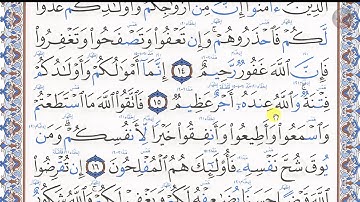 ءَامَنُوٓا۟ إِنَّ مِنْ أَزْوَٰجِكُمْ وَأَوْلَٰدِكُمْ عَدُوًّا
لَّكُمْ فَٱحْذَرُوهُمْ ۚ وَإِن تَعْفُوا۟ وَتَصْفَحُوا۟ وَتَغْفِرُوا۟
فَإِنَّ ٱللَّهَ غَفُورٌ رَّحِيمٌ ١٤ إِنَّمَآ أَمْوَٰلُكُمْ وَأَوْلَٰدُكُمْ
فِتْنَةٌ ۚ وَٱللَّهُ عِندَهُۥٓ أَجْرٌ عَظِيمٌ ١٥ فَٱتَّقُوا۟ ٱللَّهَ مَا ٱسْتَطَعْتُمْ
وَٱسْمَعُوا۟ وَأَطِيعُوا۟ وَأَنفِقُوا۟ خَيْرًا لِّأَنفُسِكُمْ ۗ وَمَن
يُوقَ شُحَّ نَفْسِهِۦ فَأُو۟لَٰٓئِكَ هُمُ ٱلْمُفْلِحُونَ ١٦ إِن تُقْرِضُوا۟
ٱللَّهَ قَرْضًا حَسَنًا يُضَٰعِفْهُ لَكُمْ وَيَغْفِرْ لَكُمْ ۚ وَٱللَّهُ شَكُورٌ